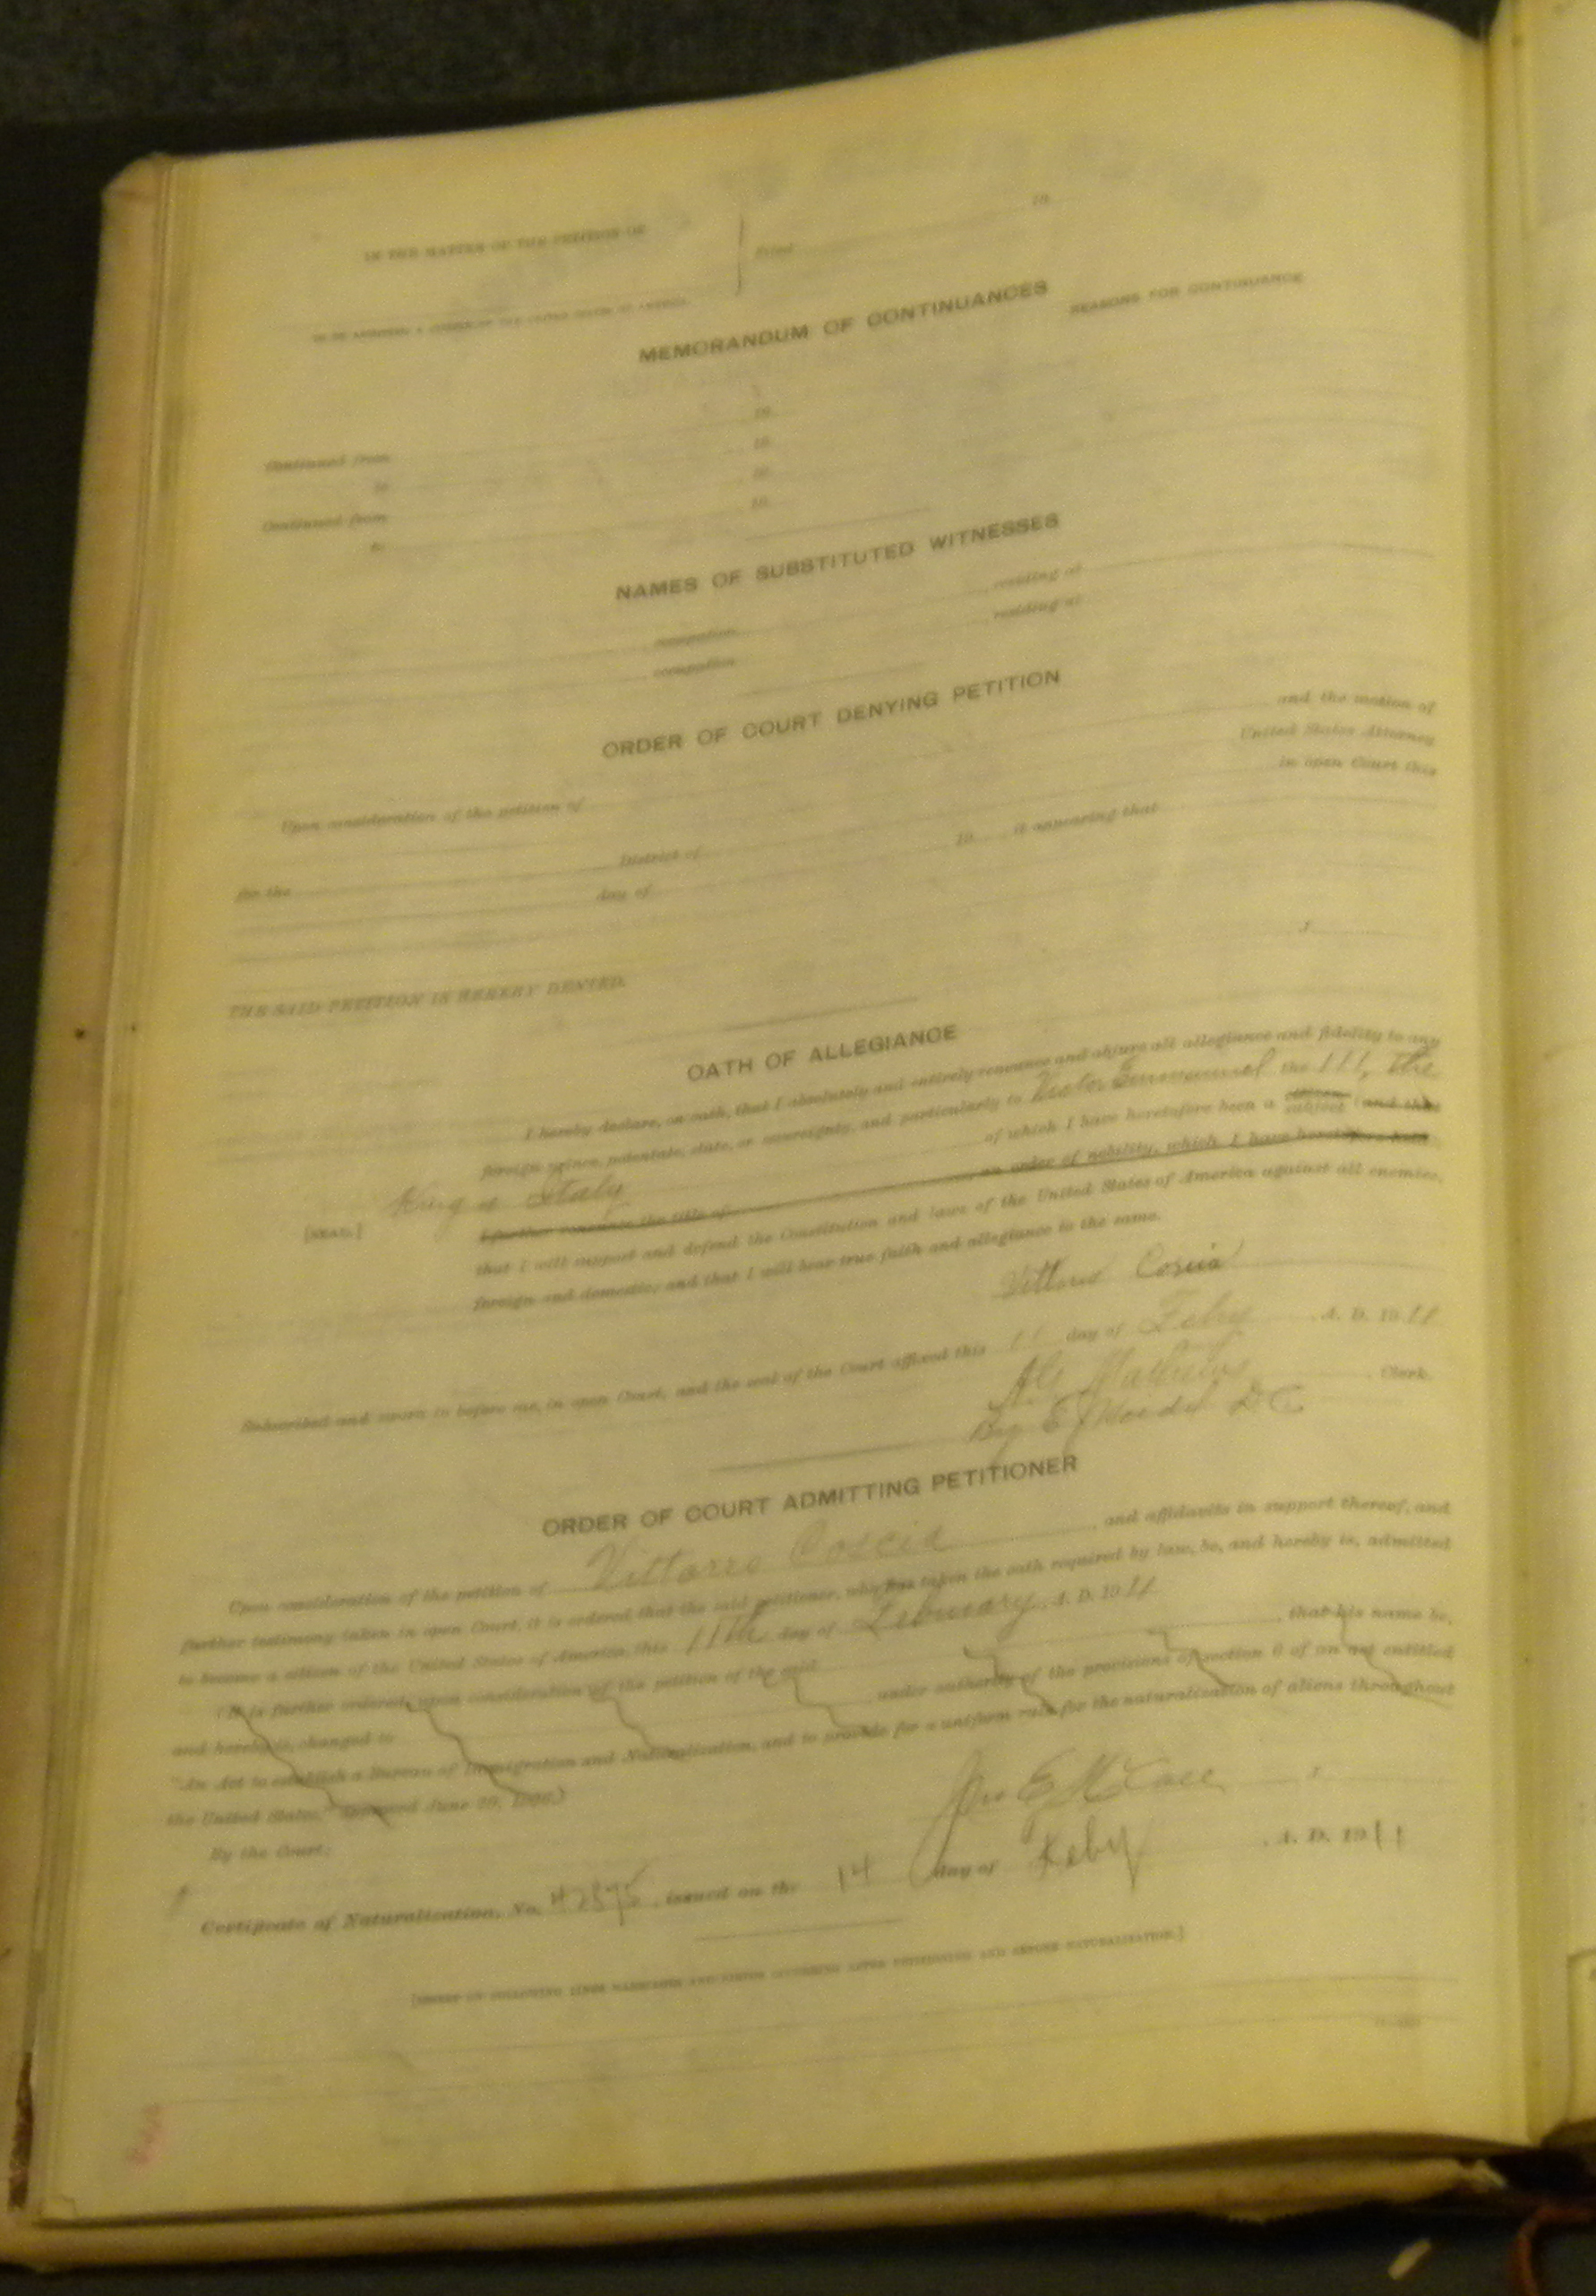 IN THE MATTER OF THE PETITION OF
Filed 19
TO BE ADMITTED A CITIZEN OF THE UNITED STATES OF AMERICA.
MEMORANDUM OF CONTINUANCES
REASONS FOR CONTINUANCE
Continued from 19
to 19
Continued from 19
to 19
NAMES OF SUBSTITUTED WITNESSES
, occupation , residing at
, occupation , residing at
ORDER OF COURT DENYING PETITION
Upon consideration of the petition of and the motion of
for the District of United States Attorney
day of 19 , it appearing that in open Court this
THE SAID PETITION IS HEREBY DENIED.
OATH OF ALLEGIANCE
I hereby declare, on oath, that I absolutely and entirely renounce and abjure all allegiance and fidelity to any
foreign prince, potentate, state, or sovereignty, and particularly to Victor Emmanuel the III, The
King of Italy of which I have heretofore been a citizen subject (and that
[SEAL.] I further renounce the title of , an order of nobility, which I have heretofore held
that I will support and defend the Constitution and laws of the United States of America against all enemies,
foreign and domestic, and that I will bear true faith and allegiance to the same.
Vittorio Coscia
Subscribed and sworn to before me, in open Court, and the seal of the Court affixed this 11 day of Feby A. D. 1911
, Clerk.
By D C
ORDER OF COURT ADMITTING PETITIONER
Upon consideration of the petition of Vittorro Coscia , and affidavits in support thereof, and
further testimony taken in open Court, it is ordered that the said petitioner, who has taken the oath required by law, be, and hereby is, admitted
to become a citizen of the United States of America, this 11th day of February, A. D. 1911
(It is further ordered, upon consideration of the petition of the said , that his name be,
and hereby is, changed to , under authority of the provisions of section 6 of an act entitled
"An Act to establish a Bureau of Immigration and Naturalization, and to provide for a uniform rule for the naturalization of aliens throughout
the United States," approved June 29, 1906.)
By the Court:
Certificate of Naturalization, No. 42575, issued on the 14 day of Feby A. D. 1911